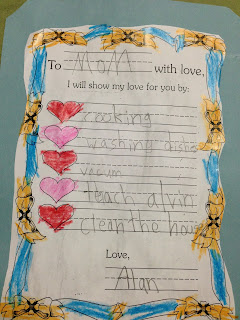 To Mom with love,
I will show my love for you by:
cooking
washing dishe
vacum
teach alvin
clean the hous
Love,
Alan